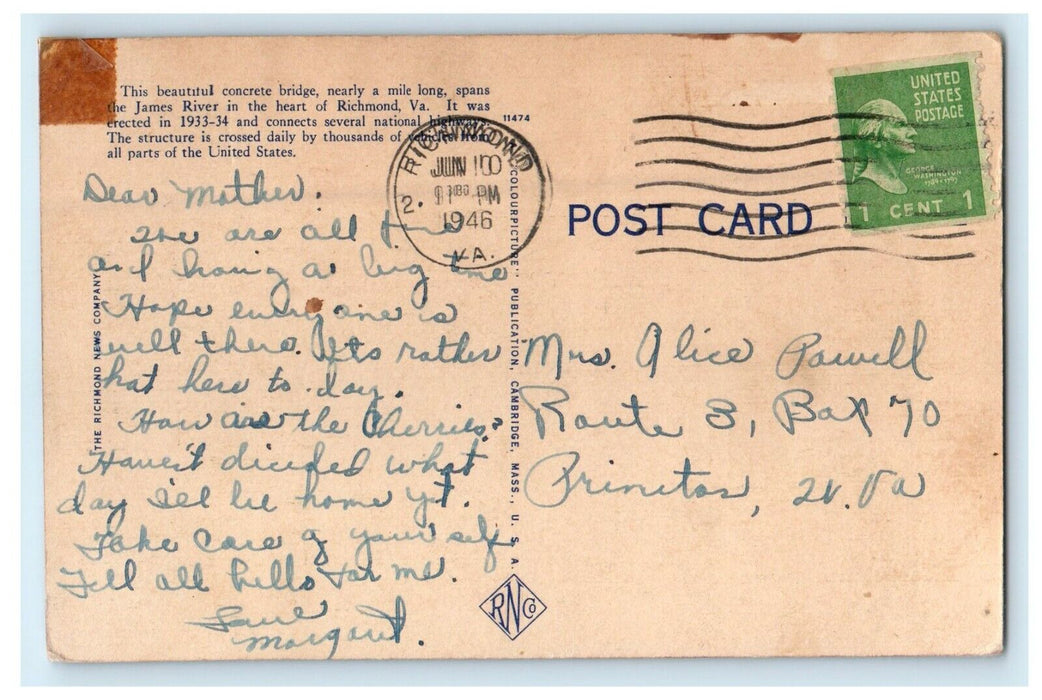 This beautiful concrete bridge, nearly a mile long, spans
the James River in the heart of Richmond, Va. It was
erected in 1933-34 and connects several national highways.
The structure is crossed daily by thousands of vehicles from
all parts of the United States.
11474
Dear Mother.
We are all fine
and having a big time
Hope everyone is
well there. Its rather
hot here to-day.
How are the Cherries?
Haven't decided what
day I'll be home yt.
Take care of your self
Tell all hello for me.
Love
Margaret.
THE RICHMOND NEWS COMPANY
"COLOURPICTURE" PUBLICATION, CAMBRIDGE, MASS., U. S. A.
RNCo
RICHMOND
2.
JUN 10
PM
1946
VA.
POST CARD
UNITED
STATES
POSTAGE
GEORGE
WASHINGTON
1789-1797
1 CENT 1
Mrs. Alice Powell
Route 3, Box 70
W. Va